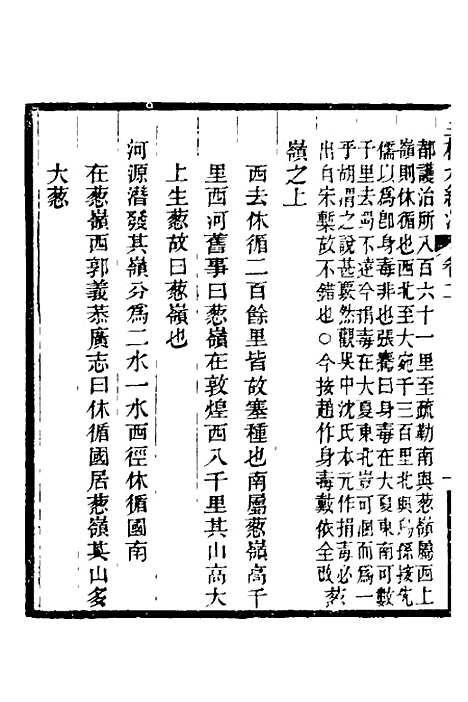 都護治所八百六十一里至疏勒南與葱嶺屬西上
嶺則休循也西北至大宛千三百里北與烏孫接先
儒以爲卽身毒非也張騫曰身毒在大夏東南可數
千里去蜀不遠今捐毒在大夏東北豈可溷而爲一
乎胡渭之說甚驗然觀吳中沈氏本元作捐毒必
出自宋槧故不錯也○今按趙作身毒戴依全改葱
嶺之上
西去休循二百餘里皆故塞種也南屬葱嶺高千
里西河舊事曰葱嶺在敦煌西八千里其山高大
上生葱故曰葱嶺也
河源潛發其嶺分爲二水一水西徑休循國南
在葱嶺西郭義恭廣志曰休循國居葱嶺其山多
大葱